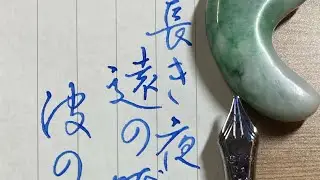 長き夜
遠の
波の